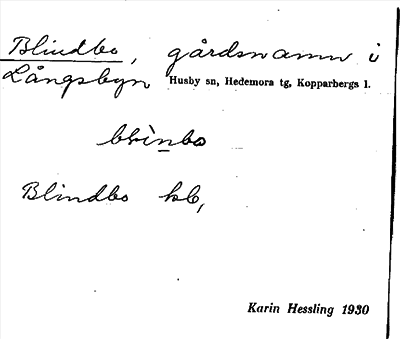 Blindbo, gårdsnamn i
Långsbyn Husby sn, Hedemora tg, Kopparbergs l.
Blindbo kb,
Karin Hessling 1930